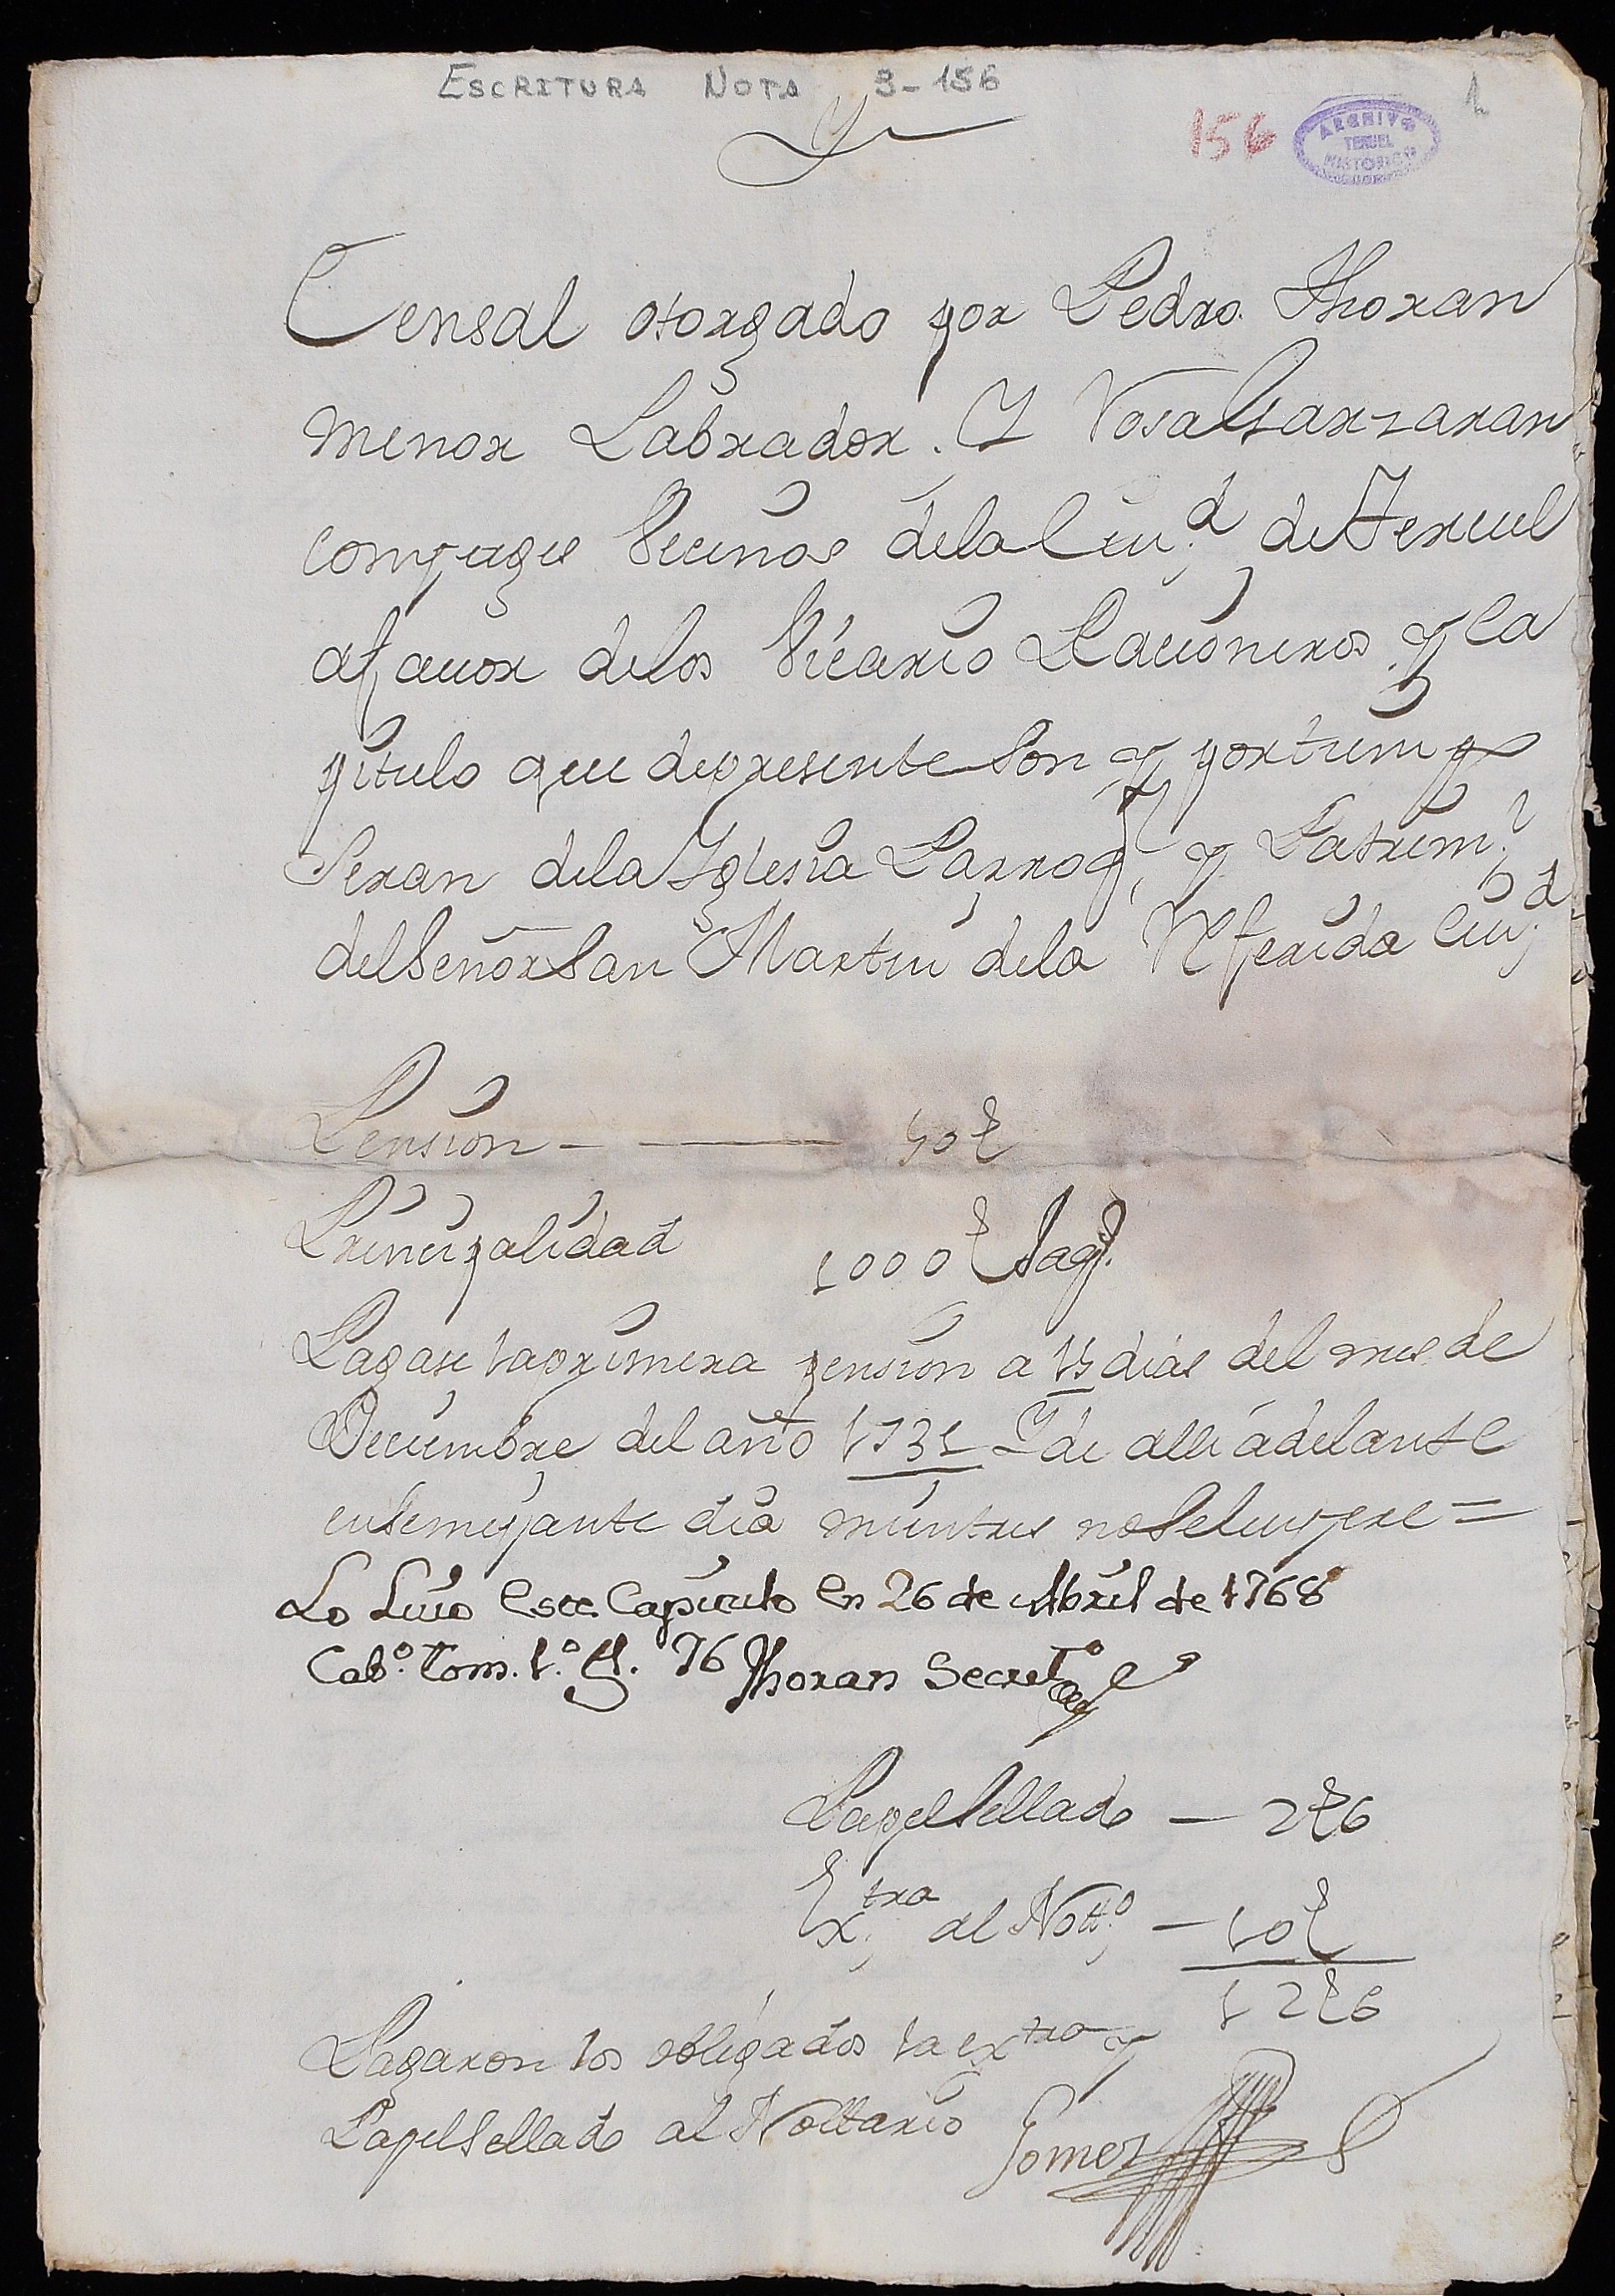 ESCRITURA NOTA 3-156
1
156
ARCHIVO
TERUEL
HISTORICO
Censal otorgado por Pedro Thoran
menor Labrador. Y Rosa Garzaran
conjuges Vecinos dela Ciu.d de Teruel
afavor delos Vicario Racioneros y Ca
pitulo que depresente son y portiempo
Seran dela Yglesia Parroq.l y Patrim.l
del Señor San Martin dela Referida Ciu.d
Pension - 50 s
Principalidad 1000 s Jaq.s
Pagase la primera pension a 15 dias del mes de
Deciembre del año 1731 Y de alli adelante
en semejante dia mientres nose luyere =
Lo Luio este Capitulo en 26 de Abril de 1768
Cab.o Tom. 1.o f. 76 Thoran Secret.o
Papel Sellado — 2 s 6
Ex.tra al Nott.o — 10 s
12 s 6
Pagaron los obligados la extra y
Papel Sellado al Nottario Gomez